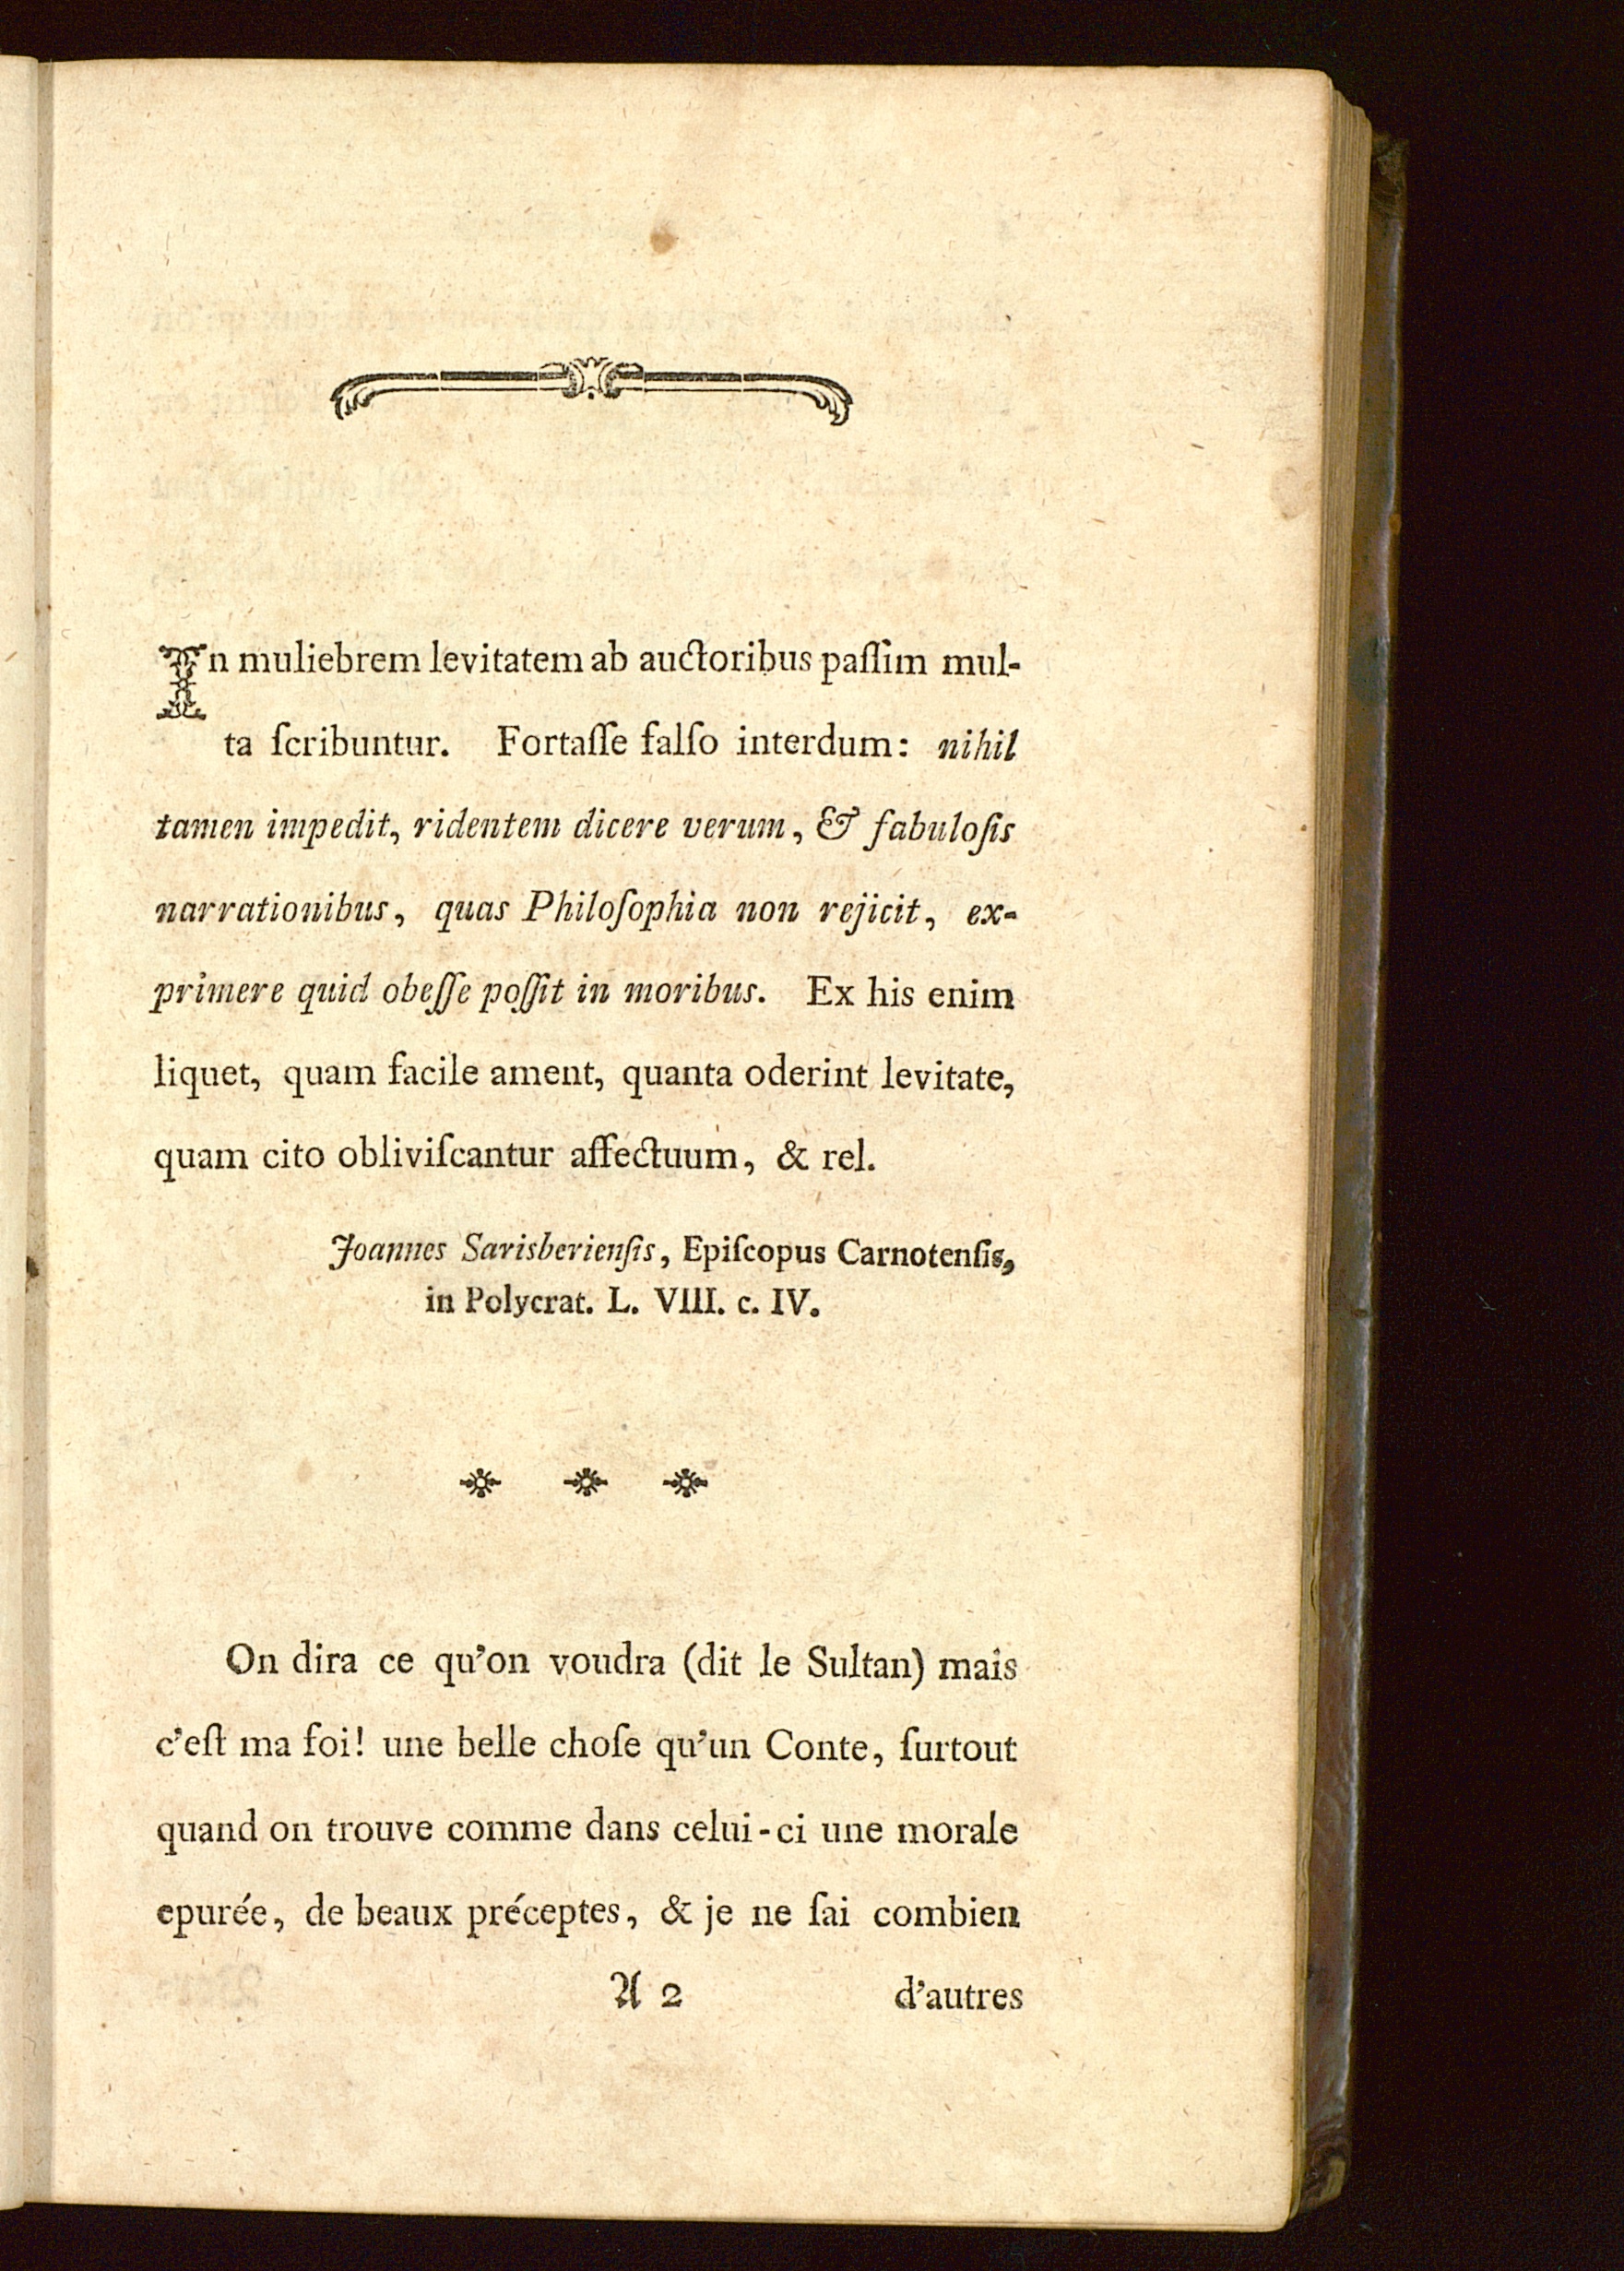 In muliebrem levitatem ab auctoribus paſſim mul-
ta ſcribuntur. Fortaſſe falſo interdum: nihil
tamen impedit, ridentem dicere verum, & fabuloſis
narrationibus, quas Philoſophia non rejicit, ex-
primere quid obeſſe poſſit in moribus. Ex his enim
liquet, quam facile ament, quanta oderint levitate,
quam cito obliviſcantur affectuum, & rel.
Joannes Sarisberienſis, Epiſcopus Carnotenſis,
in Polycrat. L. VIII. c. IV.
On dira ce qu'on voudra (dit le Sultan) mais
c'eſt ma foi! une belle choſe qu'un Conte, ſurtout
quand on trouve comme dans celui-ci une morale
epurée, de beaux préceptes, & je ne ſai combien
A 2 d'autres